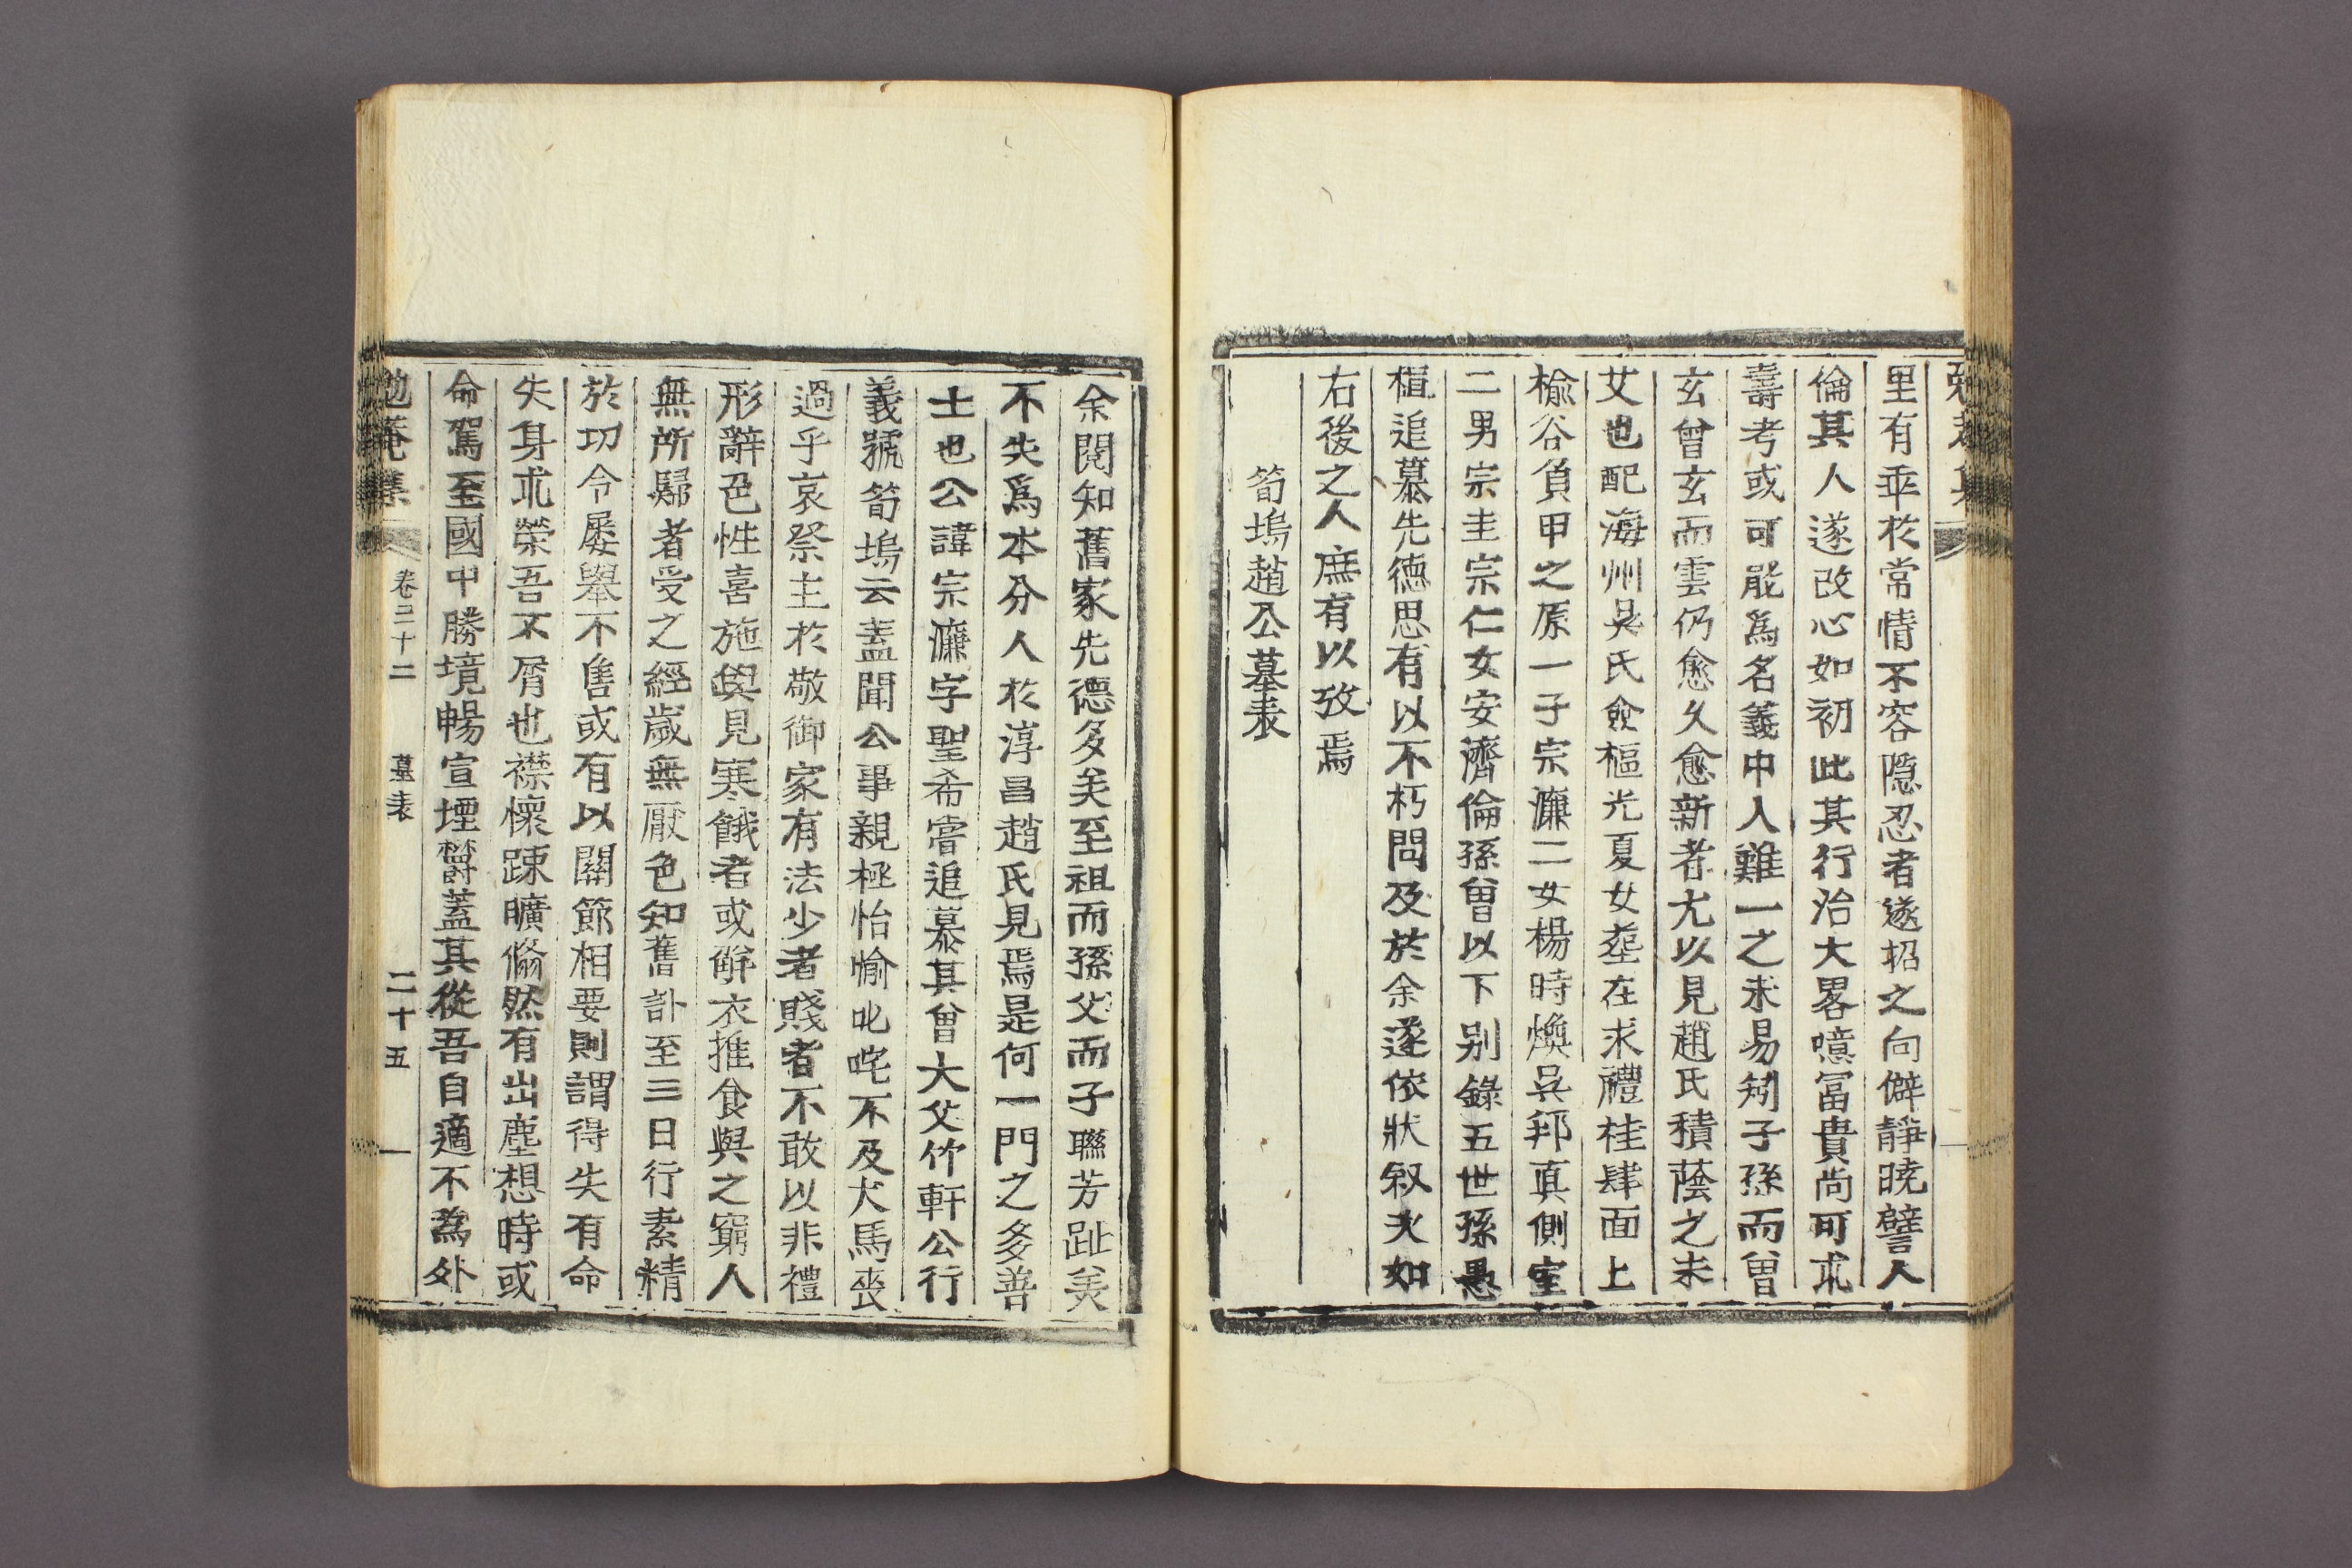 勉菴集
里有乖於常情不容隱忍者遂招之向僻靜曉譬人
倫其人遂改心如初此其行治大畧噫冨貴尚可求
壽考或可能爲名義中人難一之求易矧子孫而曾
玄曾玄而雲仍愈久愈新者尤以見趙氏積蔭之未
艾也配海州吳氏僉樞光夏女塟在求禮桂肆面上
楡谷負甲之原一子宗濂二女楊時煥吳邦真側室
二男宗圭宗仁女安濟倫孫曾以下别錄五世孫愚
植追慕先德思有以不朽問及於余遂依狀叙次如
右後之人庶有以攷焉
筍塢趙公墓表
余閱知舊家先德多矣至祖而孫父而子聯芳趾美
不失爲本分人於淳昌趙氏見焉是何一門之多善
士也公諱宗濂字聖希嘗追慕其曾大父竹軒公行
義號筍塢云盖聞公事親極怡愉叱咤不及犬馬喪
過乎哀祭主於敬御家有法少者賤者不敢以非禮
形辭色性喜施與見寒餓者或解衣推食與之窮人
無所歸者受之經歲無厭色知舊訃至三日行素精
於功令屡舉不售或有以關節相要則謂得失有命
失身求榮吾不屑也襟懷踈曠翛然有出塵想時或
命駕至國中勝境暢宣堙欝盖其從吾自適不爲外
勉菴集 卷三十二 墓表 二十五